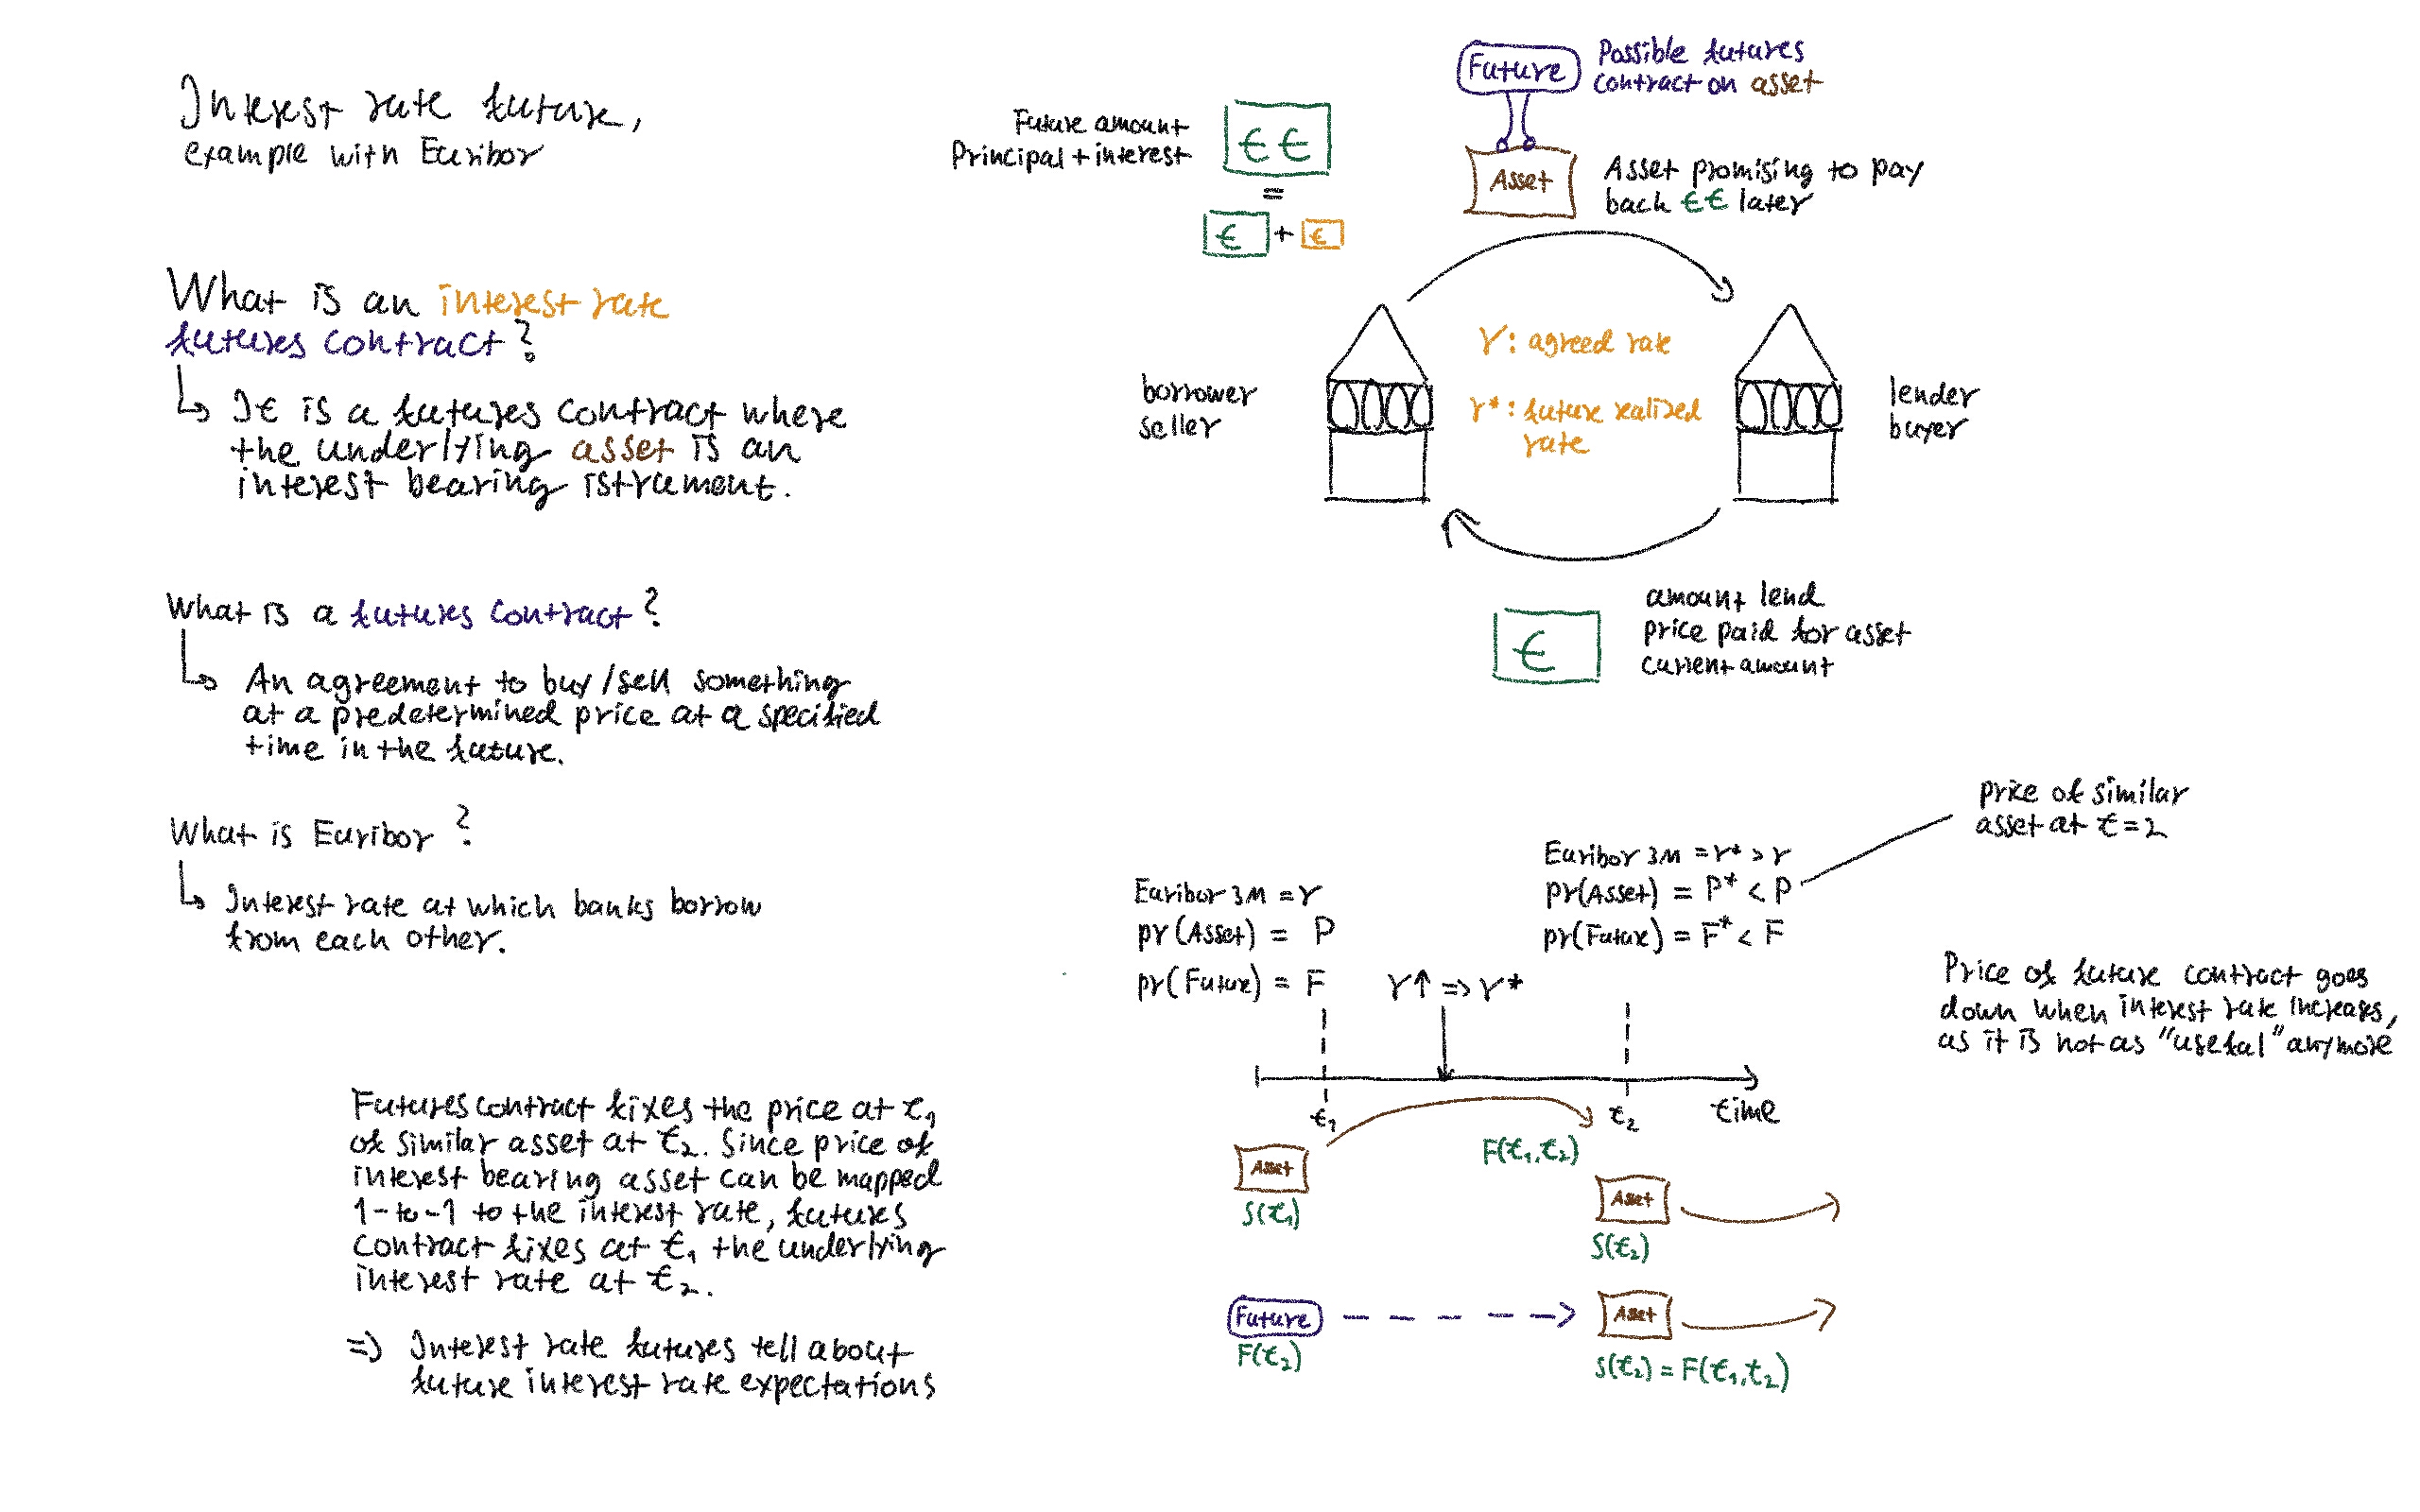 Interest rate future,
example with Euribor
What is an interest rate
futures contract?
It is a futures contract where
the underlying asset is an
interest bearing istrument.
What is a futures contract?
An agreement to buy/sell something
at a predetermined price at a specified
time in the future.
What is Euribor?
Interest rate at which banks borrow
from each other.
Futures contract fixes the price at t₁
of similar asset at t₂. Since price of
interest bearing asset can be mapped
1-to-1 to the interest rate, futures
contract fixes at t₁ the underlying
interest rate at t₂.
=> Interest rate futures tell about
future interest rate expectations
Future
Possible futures
contract on asset
Future amount
Principal + interest
€ €
=
€ + €
Asset
Asset promising to pay
back €€ later
borrower
seller
r: agreed rate
r*: future realized
rate
lender
buyer
€
amount lend
price paid for asset
current amount
price of similar
asset at t=2
Euribor 3M = r
pr(Asset) = P
pr(Future) = F
r↑ => r*
Euribor 3M = r* > r
pr(Asset) = P* < P
pr(Future) = F* < F
Price of future contract goes
down when interest rate increases,
as it is not as "useful" anymore
t₁
t₂
time
Asset
S(t₁)
F(t₁,t₂)
Asset
S(t₂)
Future
F(t₂)
Asset
S(t₂) = F(t₁,t₂)